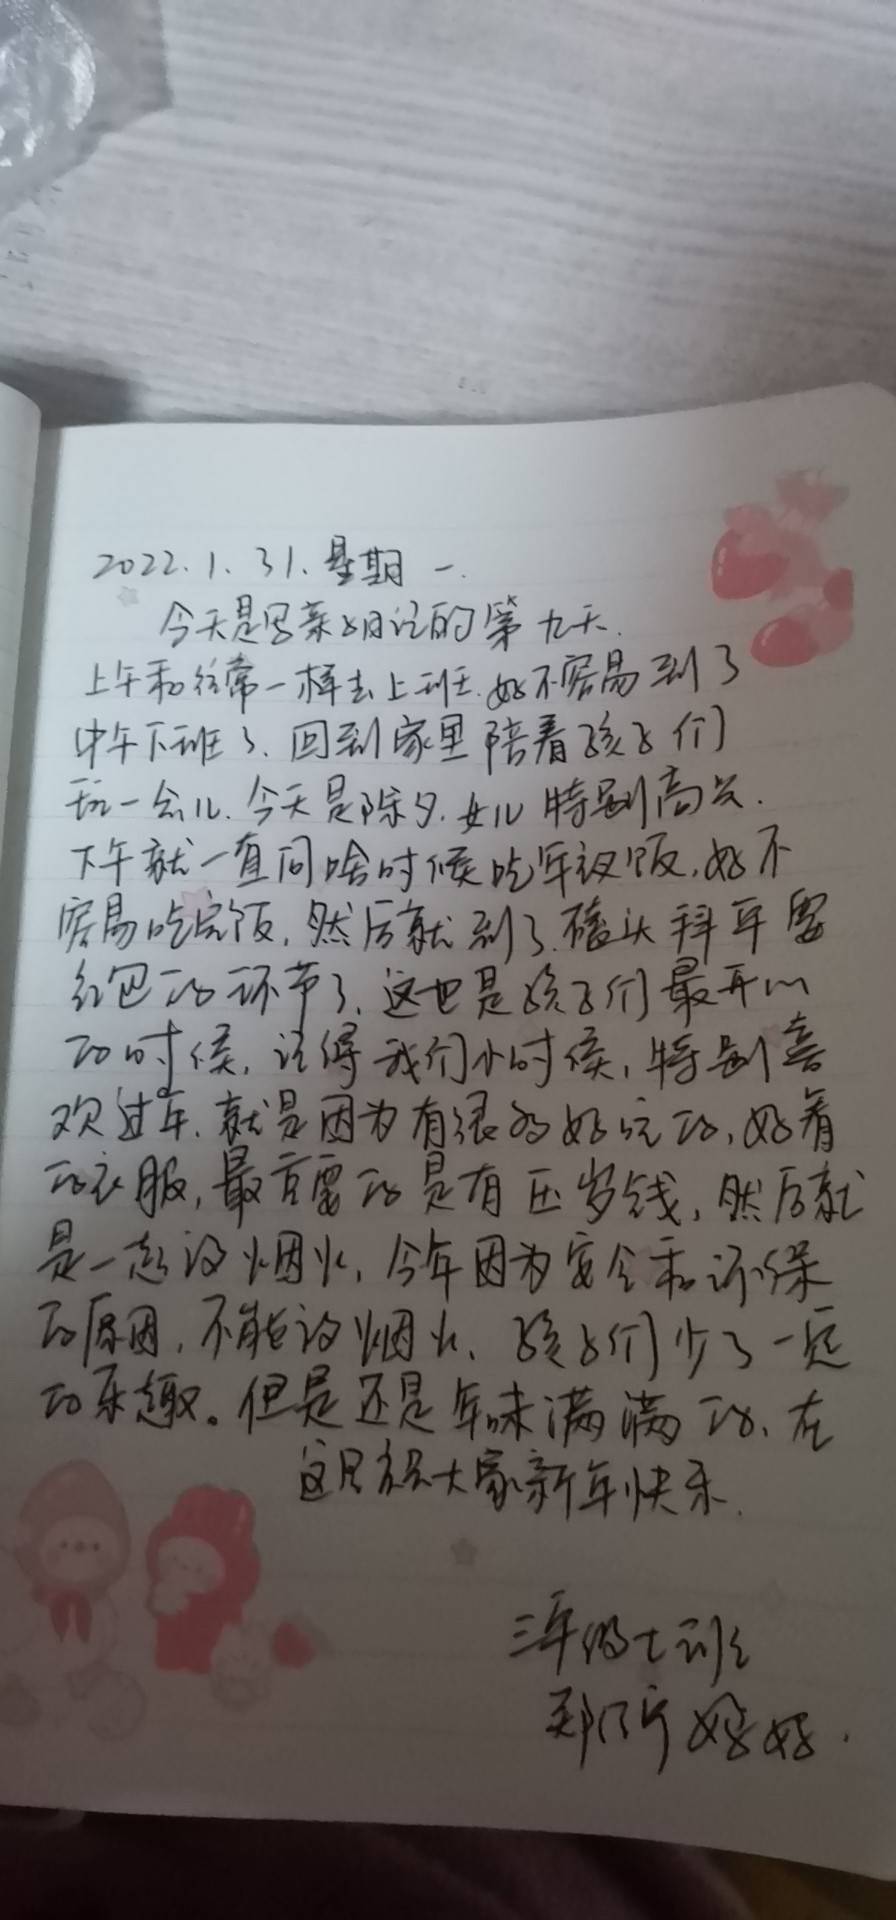 2022.1.31.星期一.
今天是写亲子日记的第九天.
上午和往常一样去上班.好不容易到了
中午下班了.回到家里陪着孩子们
玩一会儿.今天是除夕.女儿特别高兴.
下午就一直问啥时候吃年夜饭,好不
容易吃完饭,然后就到了.磕头拜年要
红包的环节了,这也是孩子们最开心
的时候,记得我们小时候,特别喜
欢过年.就是因为有很多好玩的,好看
的衣服,最主要的是有压岁钱,然后就
是一起放烟火,今年因为安全和环保
的原因,不能放烟火、孩子们少了一定
的乐趣。但是还是年味满满的、在
这里祝大家新年快乐.
三年级七班
郑 妈妈.